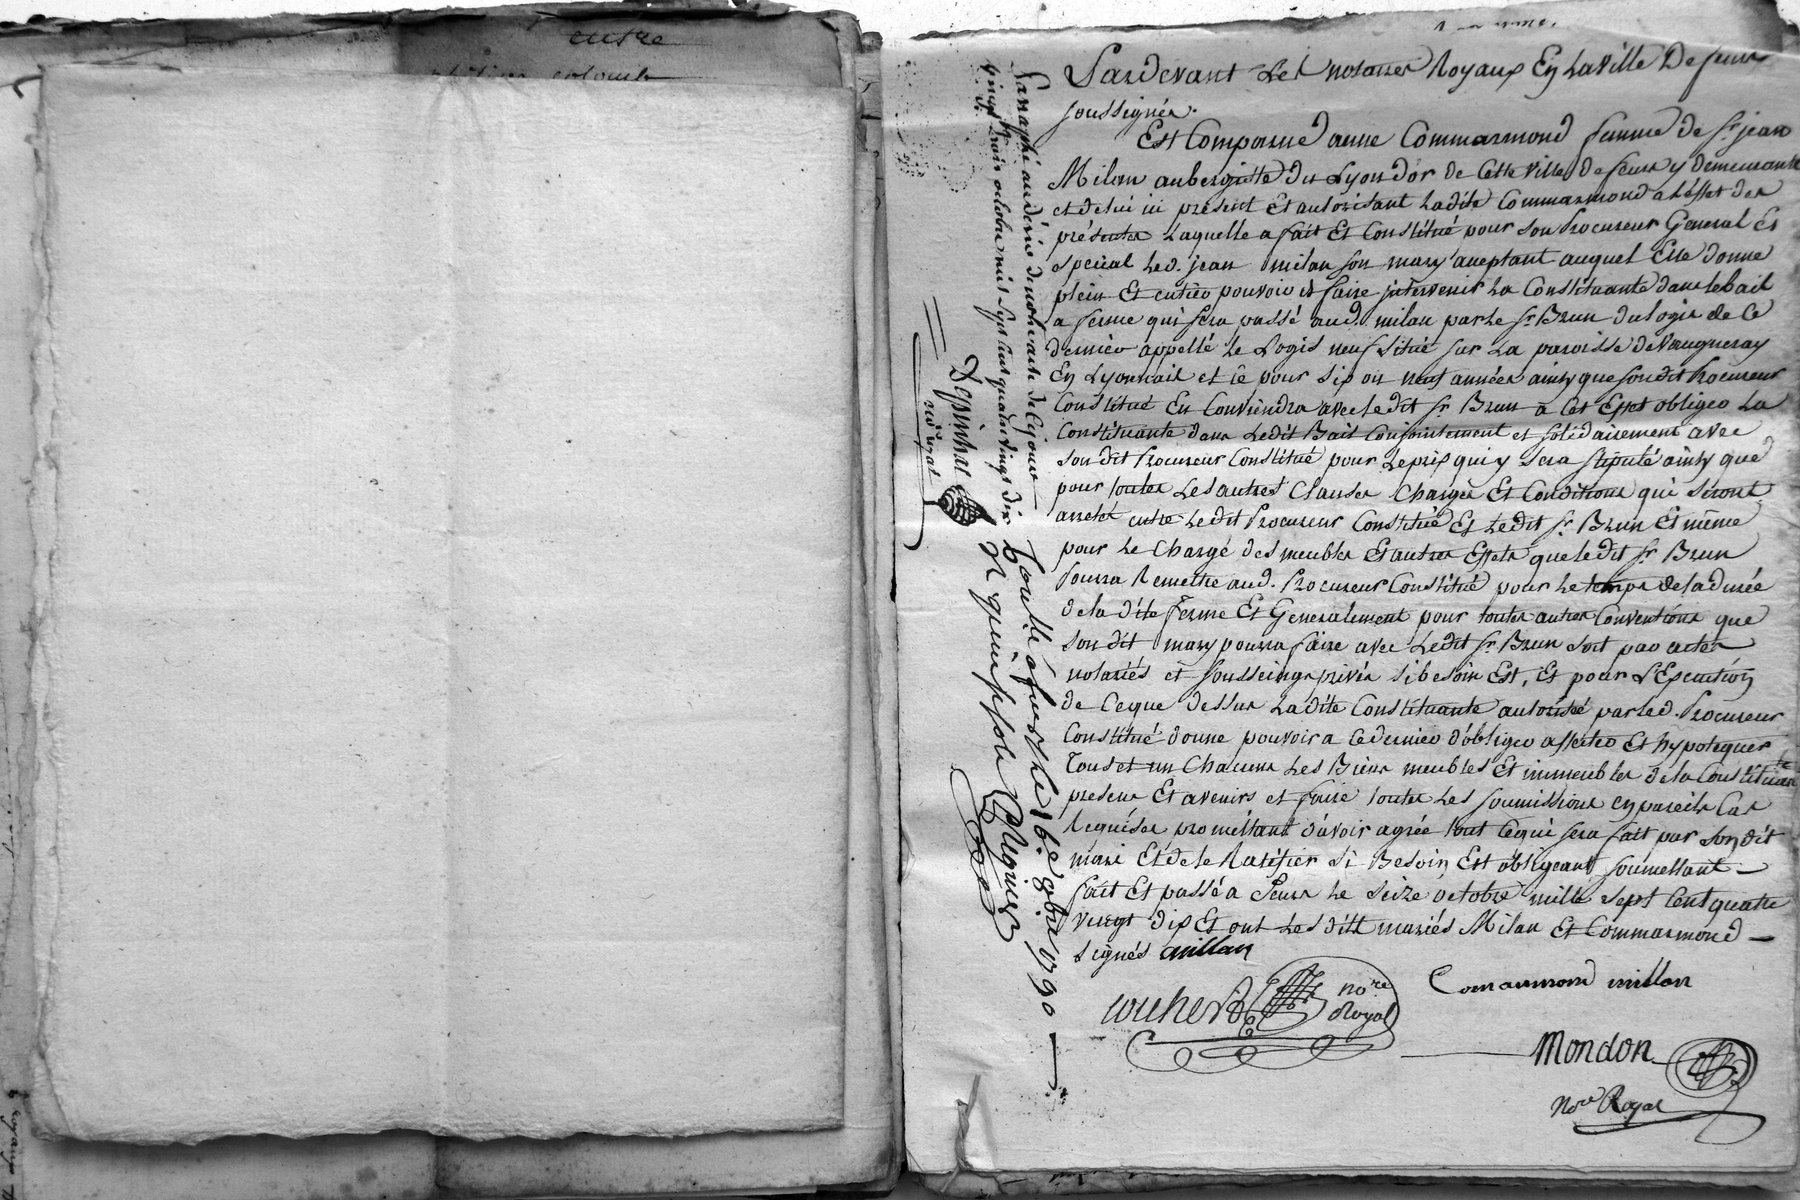 entre
Pardevant Les notaires Royaux En La ville De feurs
soussignés.
Est Comparue anne Commarmond femme de sr. jean
Milan aubergiste du Lyon d'or de Cette ville de feurs y demeurante
et de lui ici présent Et autorisant Ladite Commarmond a L'effet des
présentes Laquelle a fait Et Constitué pour son Procureur General Et
special Led. jean milan son mary aceptant auquel Elle donne
plein Et entier pouvoir de faire jntervenir La Constituante dans le bail
a ferme qui sera passé aud. milan par Le sr. Brun du logis de Ce
dernier appellé Le Logis neuf situé sur La paroisse de Vaugneray
En Lyonnais et ce pour six ou neuf années ainsy que son dit Procureur
Constitué En Conviendra avec le dit sr. Brun a Cet Effet obliger La
Constituante dans Le dit Bail Conjointement et solidairement avec
son dit Procureur Constitué pour Le prix qui y sera stipulé ainsy que
pour toutes Les autres Clauses Charges Et Conditions qui seront
arrêté entre Le dit Procureur Constitué Et Le dit sr. Brun Et même
pour Le Chargé des meubles Et autres Effets que le dit sr. Brun
Pourra Remettre aud. Procureur Constitué pour Le temps de la durée
de la dite ferme Et Generalement pour toutes autres Conventions que
son dit mary pourra faire avec Le dit sr. Brun soit par actes
notariés et sousseings privés si besoin Est, Et pour L'Execution
de Ce que dessus La dite Constituante autorisée par Led. Procureur
Constitué donne pouvoir a Ce dernier d'obliger affecter Et hypotequer
Tous et un Chacuns Les Biens meubles Et immeubles de la Constituante
presens Et avenirs et faire toutes Les soumissions en pareils Cas
Requises promettant d'avoir agrée tout Ce qui sera fait par son dit
mari Et de Le Ratifier si Besoin Est obligeant soumettant
fait Et passé a feurs Le seize octobre mille sept Cent quatre
vingt dix Et ont Les dits mariés Milan Et Commarmond
signés millan
Comarmond millan
nore
Royal
Mondon
nore Royal
Paraphé au désir de notre acte de Cejour
vingt trois octobre mil sept cent quatre vingt dix
Depinhac
nore royal
Contllé a feurs Le 16e 8bre 1790
Rt quinze sols